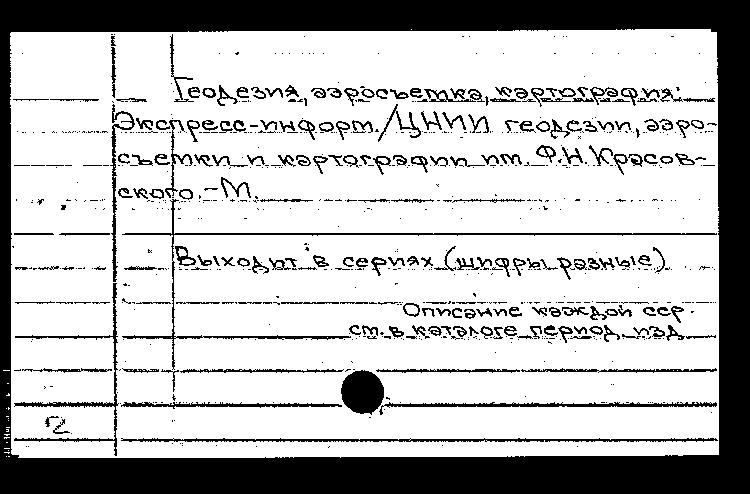 Геодезия, аэросъемка, картография:
Экспресс-информ./ЦНИИ геодезии, аэро-
съемки и картографии им. Ф.Н. Красов-
ского. – М.
Выходит в сериях (шифры разные)
Описание каждой сер.
см. в каталоге период. изд.
2